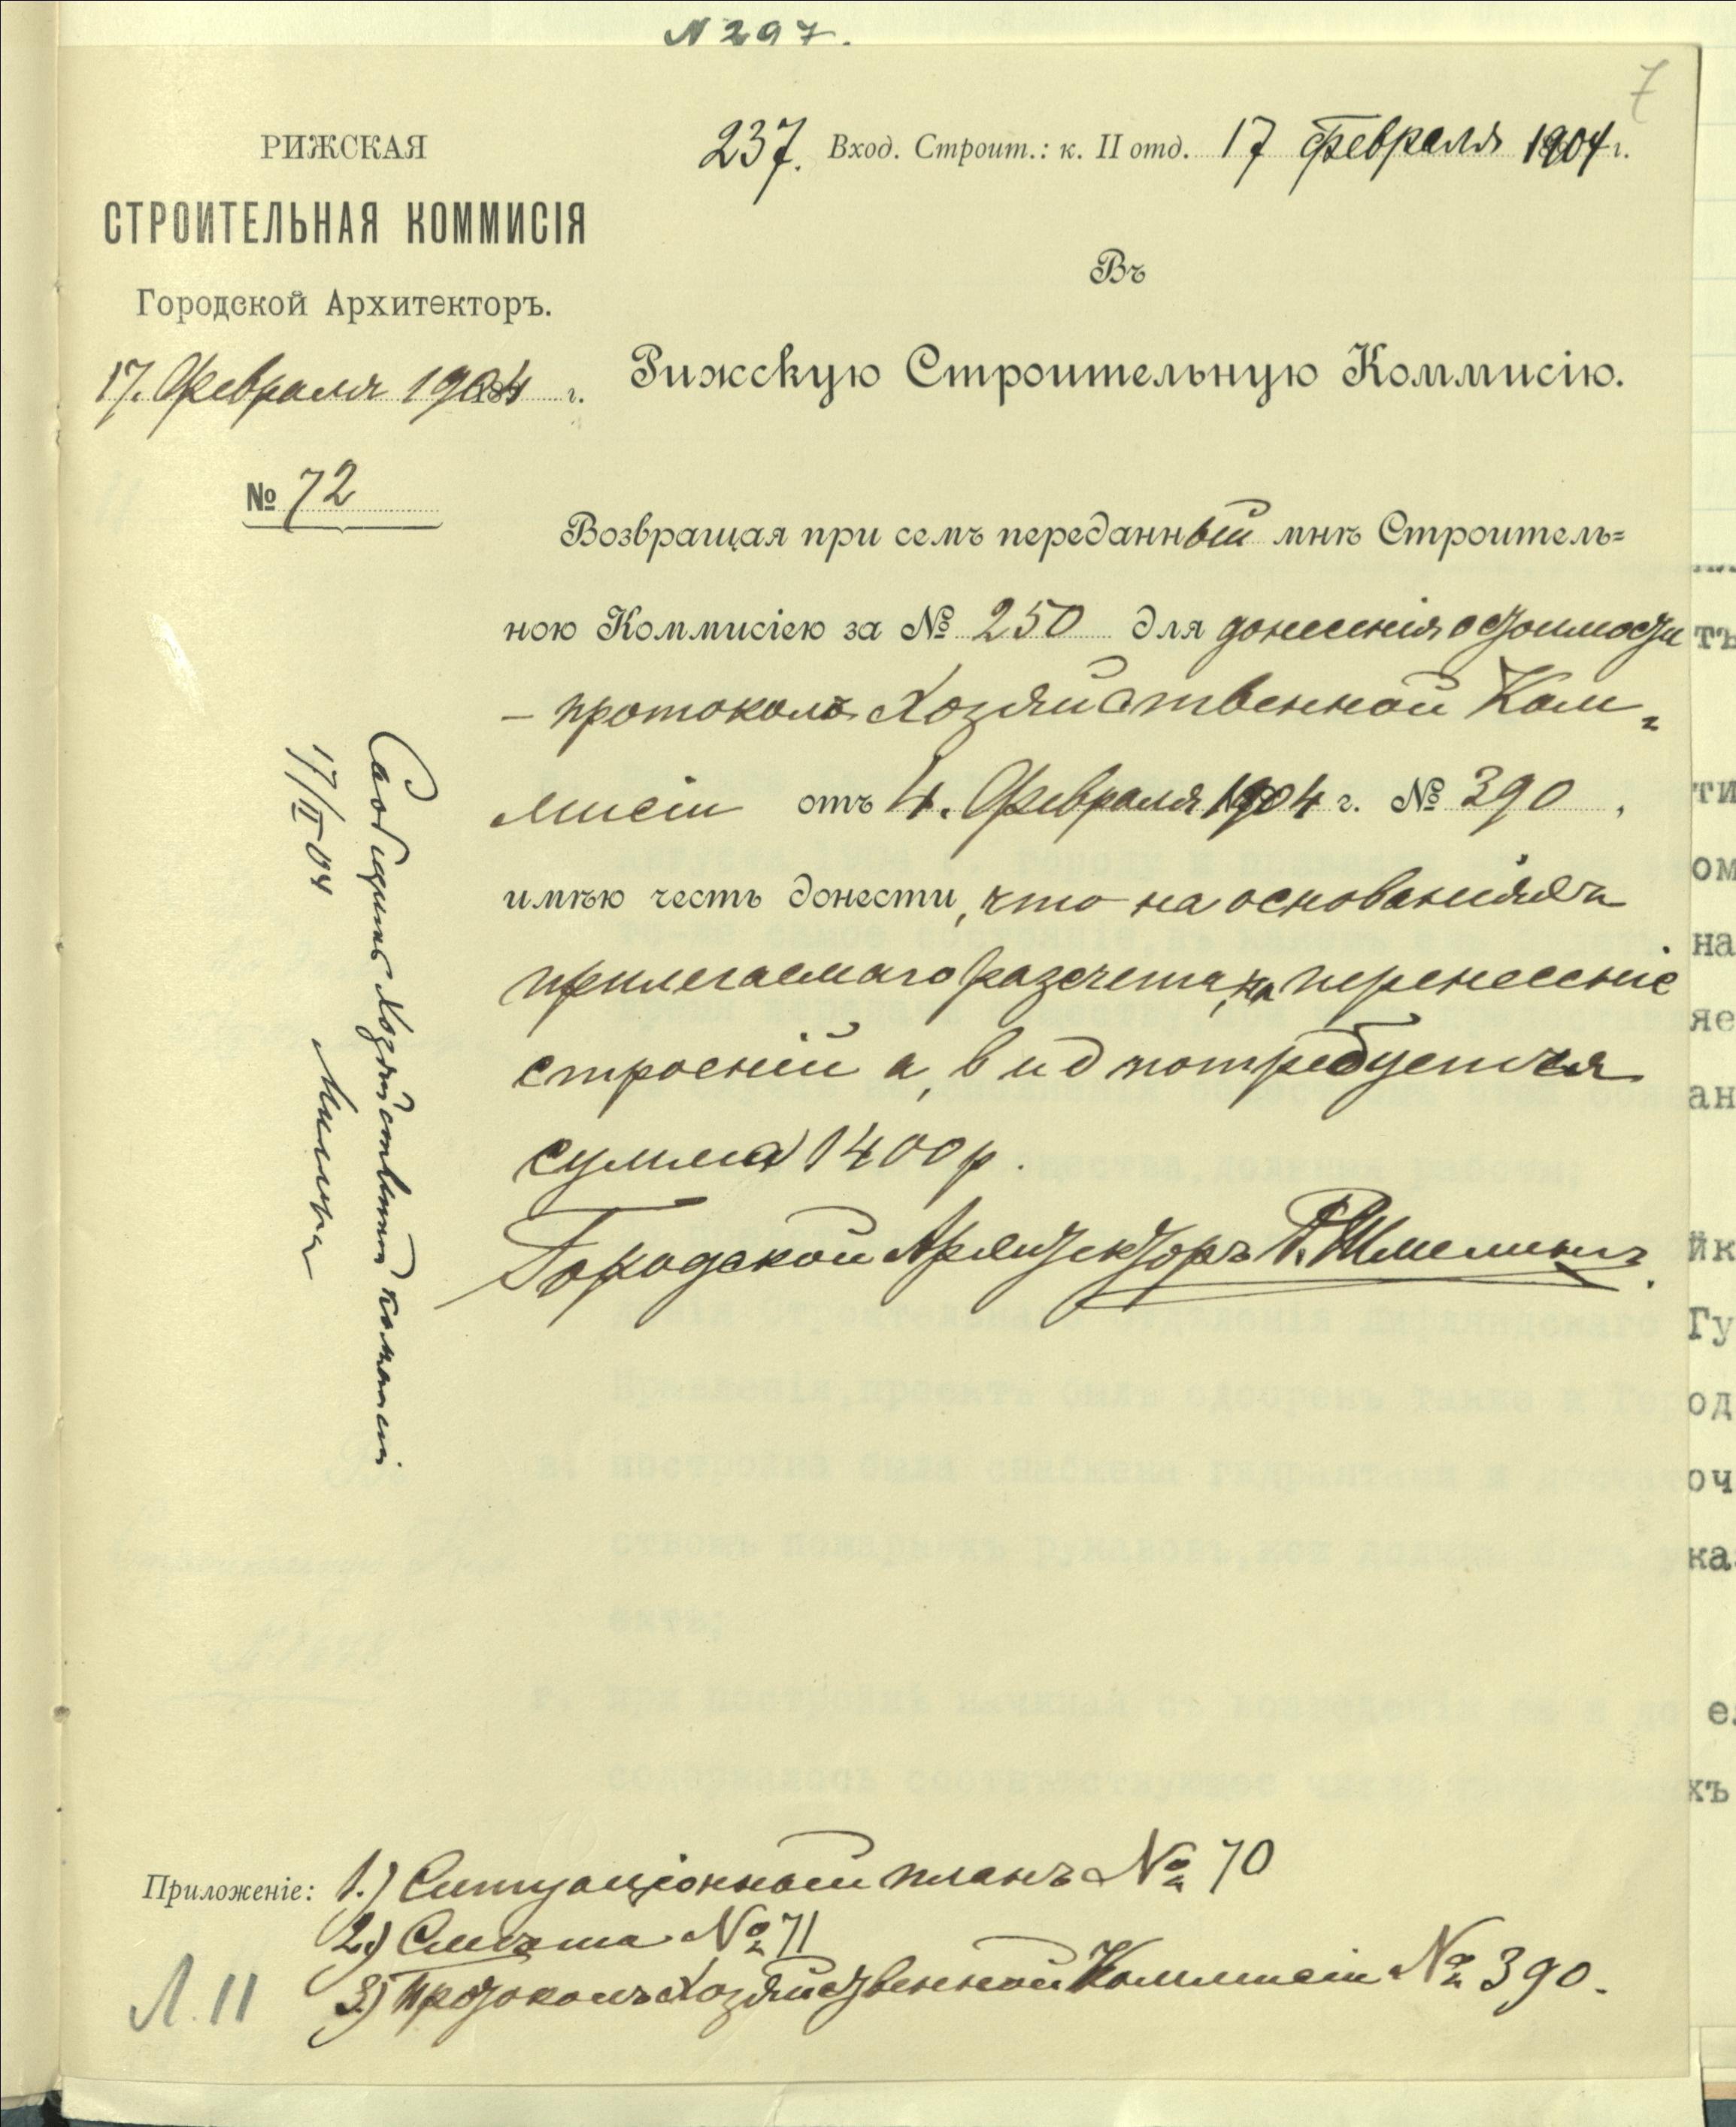 N 297.
7
237. Вход. Строит.: к. II отд. 17 Февраля 1904 г.
РИЖСКАЯ
СТРОИТЕЛЬНАЯ КОММИСІЯ
Городской Архитекторъ.
17. Февраля 1904 г.
№ 72
Въ
Рижскую Строительную Коммисію.
Возвращая при семъ переданный мнѣ Строитель=
ною Коммисіею за № 250 для донесенія о стоимости
– протоколъ Хозяйственной Ком=
мисіи отъ 4. Февраля 1904 г. № 390,
имѣю честь донести, что на основаніяхъ
прилегаемаго разсчета, на перенесеніе
строеній а, в и d потребуется
сумма 1400 р.
Городской Архитекторъ Р. Шмелингъ.
Сообщить Хозяйственной Коммисіи
17/II 04
Приложеніе: 1.) Ситуаціонный планъ № 70
2.) Смѣта № 71
3.) Протоколъ Хозяйственной Коммисіи № 390.
Л. 11